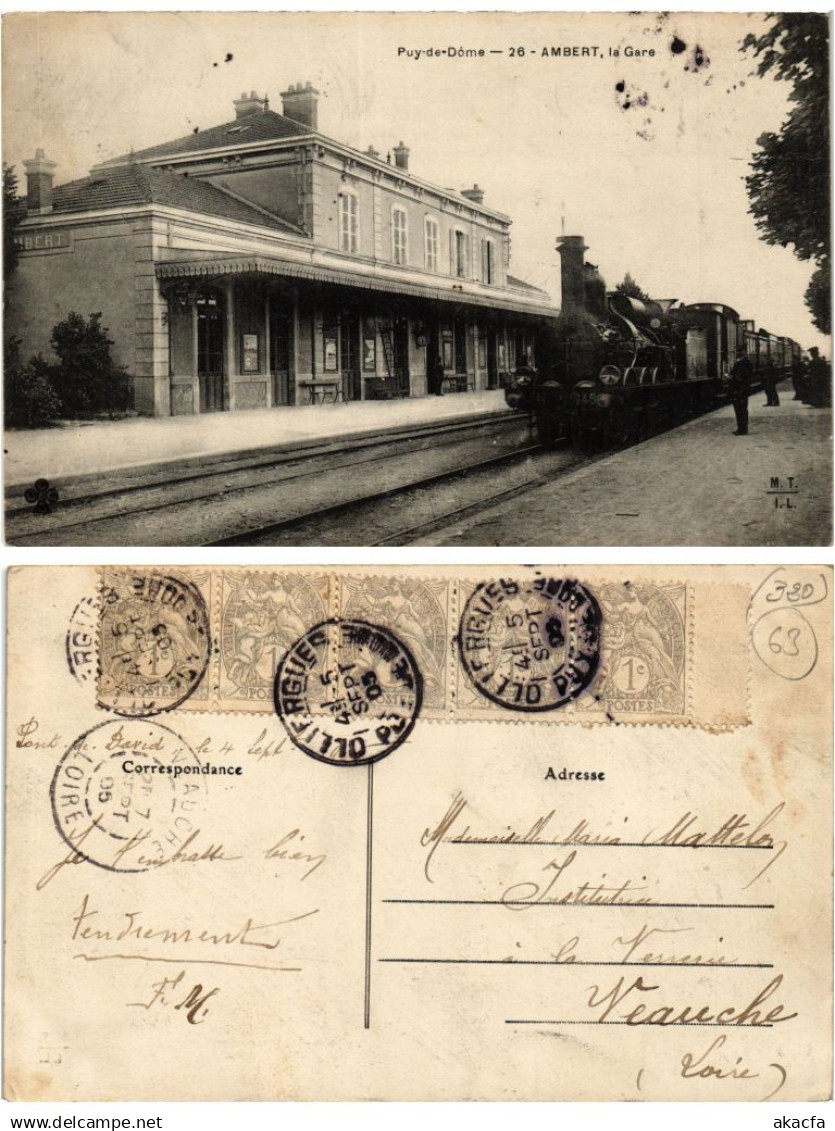 Puy-de-Dôme — 26 - AMBERT, la Gare
MBERT
M. T.
I.L.
OLLIERGUES
PUY DE DOME
4E 5
SEPT
05
1c
POSTES
OLLIERGUES
PUY DE DOME
4E 5
SEPT
05
OLLIERGUES
PUY DE DOME
4E 5
SEPT
05
1c
POSTES
320
63
Pont de David le 4 Sept
Correspondance
Adresse
VEAUCHE
7
SEPT
05
LOIRE
Je t'embrasse bien
tendrement
F. M.
Mademoiselle Maria Mattelon
Institutrice
à la Verrerie
Veauche
(Loire)
www.delcampe.net
akacfa